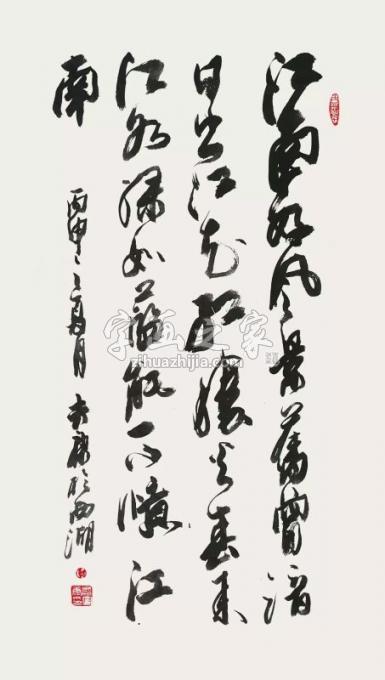 江南好風景舊曾諳
日出江花紅勝火春来
江水綠如藍能不憶江
南
丙申之夏月 於西湖
字画之家
zihuazhijia.com